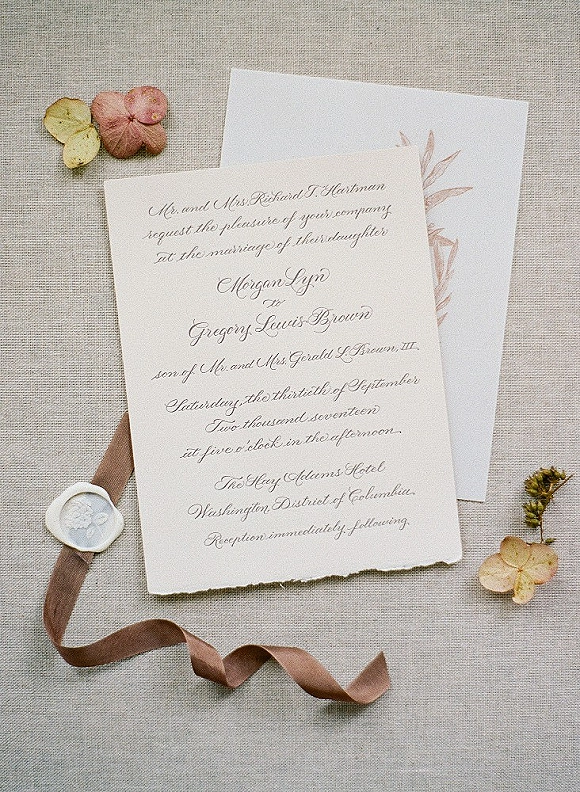 Mr. and Mrs. Richard T. Hartman
request the pleasure of your company
at the marriage of their daughter
Morgan Lyn
to
Gregory Lewis Brown
son of Mr. and Mrs. Gerald L. Brown, III
Saturday, the thirtieth of September
Two thousand seventeen
at five o'clock in the afternoon
The Hay Adams Hotel
Washington, District of Columbia
Reception immediately following